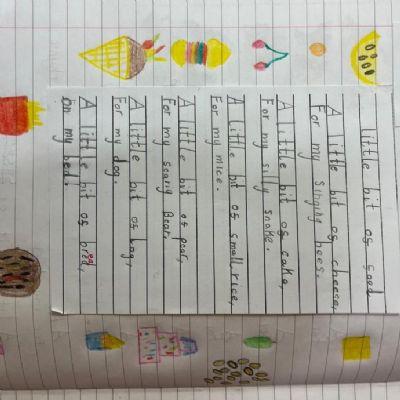 A little bit os sood
A little bit os cheese,
For my singing bees.
A little bit os cake,
For my silly snake.
A little bit of small rice,
For my mice.
A little bit os pear,
For my scary Bear.
A little bit os hog,
For my dog.
A little bit os bread,
on my bed.